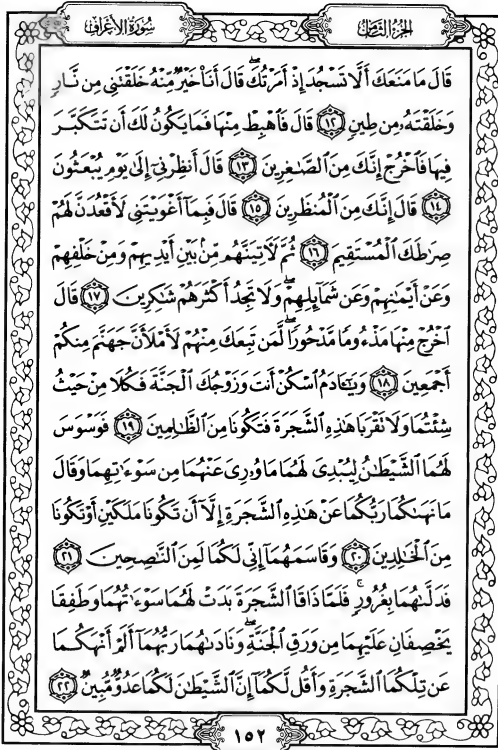 سُورَةُ الأَعْرَافِ الجُزْءُ الثَّامِنُ
قَالَ مَا مَنَعَكَ أَلَّا تَسْجُدَ إِذْ أَمَرْتُكَ ۖ قَالَ أَنَا۠ خَيْرٌ مِّنْهُ خَلَقْتَنِى مِن نَّارٍ
وَخَلَقْتَهُۥ مِن طِينٍ ١٢ قَالَ فَٱهْبِطْ مِنْهَا فَمَا يَكُونُ لَكَ أَن تَتَكَبَّرَ
فِيهَا فَٱخْرُجْ إِنَّكَ مِنَ ٱلصَّـٰغِرِينَ ١٣ قَالَ أَنظِرْنِىٓ إِلَىٰ يَوْمِ يُبْعَثُونَ
١٤ قَالَ إِنَّكَ مِنَ ٱلْمُنظَرِينَ ١٥ قَالَ فَبِمَآ أَغْوَيْتَنِى لَأَقْعُدَنَّ لَهُمْ
صِرَٰطَكَ ٱلْمُسْتَقِيمَ ١٦ ثُمَّ لَـَٔاتِيَنَّهُم مِّنۢ بَيْنِ أَيْدِيهِمْ وَمِنْ خَلْفِهِمْ
وَعَنْ أَيْمَـٰنِهِمْ وَعَن شَمَآئِلِهِمْ ۖ وَلَا تَجِدُ أَكْثَرَهُمْ شَـٰكِرِينَ ١٧ قَالَ
ٱخْرُجْ مِنْهَا مَذْءُومًا مَّدْحُورًا ۖ لَّمَن تَبِعَكَ مِنْهُمْ لَأَمْلَأَنَّ جَهَنَّمَ مِنكُمْ
أَجْمَعِينَ ١٨ وَيَـٰٓـَٔادَمُ ٱسْكُنْ أَنتَ وَزَوْجُكَ ٱلْجَنَّةَ فَكُلَا مِنْ حَيْثُ
شِئْتُمَا وَلَا تَقْرَبَا هَـٰذِهِ ٱلشَّجَرَةَ فَتَكُونَا مِنَ ٱلظَّـٰلِمِينَ ١٩ فَوَسْوَسَ
لَهُمَا ٱلشَّيْطَـٰنُ لِيُبْدِىَ لَهُمَا مَا وُۥرِىَ عَنْهُمَا مِن سَوْءَٰتِهِمَا وَقَالَ
مَا نَهَىٰكُمَا رَبُّكُمَا عَنْ هَـٰذِهِ ٱلشَّجَرَةِ إِلَّآ أَن تَكُونَا مَلَكَيْنِ أَوْ تَكُونَا
مِنَ ٱلْخَـٰلِدِينَ ٢٠ وَقَاسَمَهُمَآ إِنِّى لَكُمَا لَمِنَ ٱلنَّـٰصِحِينَ ٢١
فَدَلَّىٰهُمَا بِغُرُورٍ ۚ فَلَمَّا ذَاقَا ٱلشَّجَرَةَ بَدَتْ لَهُمَا سَوْءَٰتُهُمَا وَطَفِقَا
يَخْصِفَانِ عَلَيْهِمَا مِن وَرَقِ ٱلْجَنَّةِ ۖ وَنَادَىٰهُمَا رَبُّهُمَآ أَلَمْ أَنْهَكُمَا
عَن تِلْكُمَا ٱلشَّجَرَةِ وَأَقُل لَّكُمَآ إِنَّ ٱلشَّيْطَـٰنَ لَكُمَا عَدُوٌّ مُّبِينٌ ٢٢
١٥٢